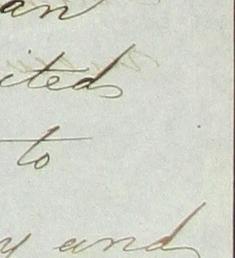 an
ited
to
y and